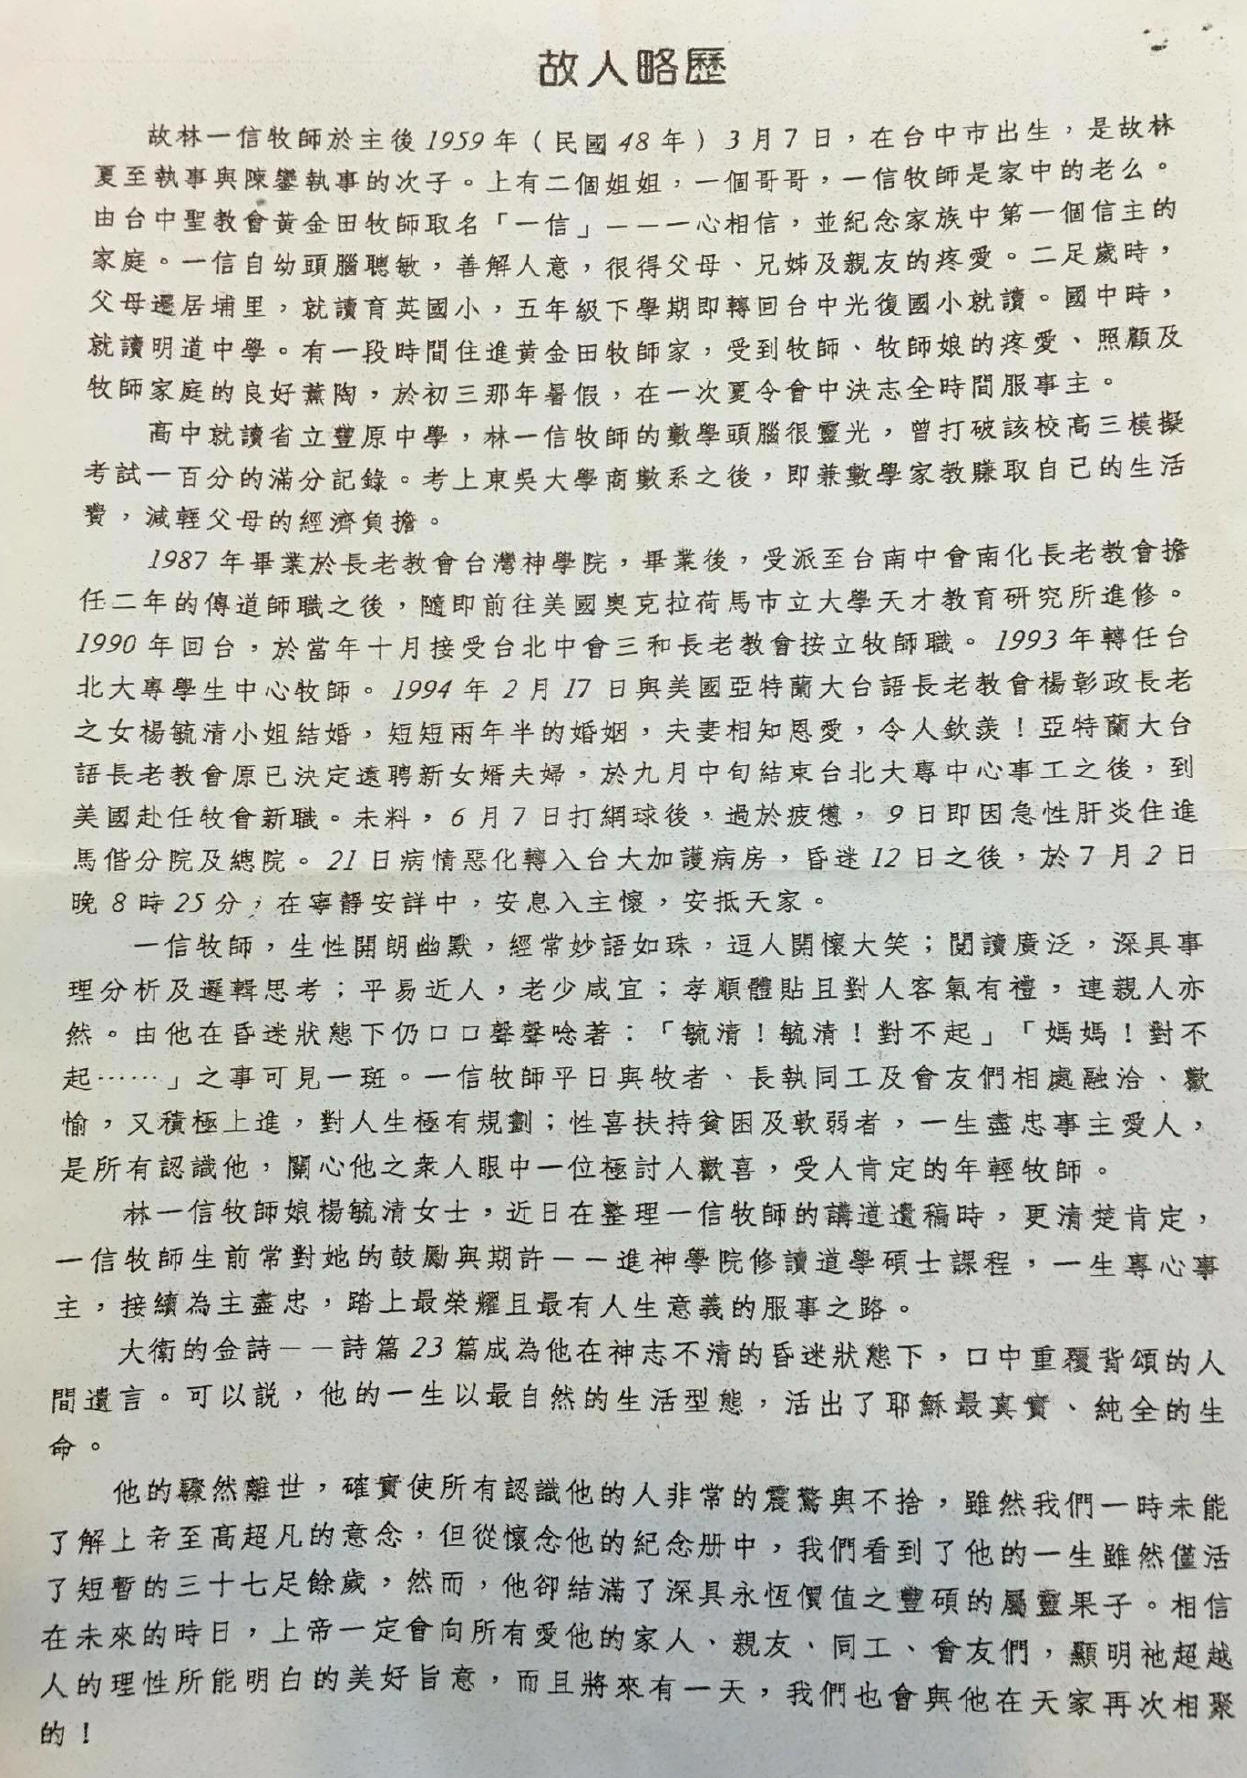 故人略歷
故林一信牧師於主後1959年（民國48年）3月7日，在台中市出生，是故林
夏至執事與陳鑾執事的次子。上有二個姐姐，一個哥哥，一信牧師是家中的老么。
由台中聖教會黃金田牧師取名「一信」——一心相信，並紀念家族中第一個信主的
家庭。一信自幼頭腦聰敏，善解人意，很得父母、兄姊及親友的疼愛。二足歲時，
父母遷居埔里，就讀育英國小，五年級下學期即轉回台中光復國小就讀。國中時，
就讀明道中學。有一段時間住進黃金田牧師家，受到牧師、牧師娘的疼愛、照顧及
牧師家庭的良好薰陶，於初三那年暑假，在一次夏令會中決志全時間服事主。
高中就讀省立豐原中學，林一信牧師的數學頭腦很靈光，曾打破該校高三模擬
考試一百分的滿分記錄。考上東吳大學商數系之後，即兼數學家教賺取自己的生活
費，減輕父母的經濟負擔。
1987年畢業於長老教會台灣神學院，畢業後，受派至台南中會南化長老教會擔
任二年的傳道師職之後，隨即前往美國奧克拉荷馬市立大學天才教育研究所進修。
1990年回台，於當年十月接受台北中會三和長老教會按立牧師職。1993年轉任台
北大專學生中心牧師。1994年2月17日與美國亞特蘭大台語長老教會楊彰政長老
之女楊毓清小姐結婚，短短兩年半的婚姻，夫妻相知恩愛，令人欽羨！亞特蘭大台
語長老教會原已決定遠聘新女婿夫婦，於九月中旬結束台北大專中心事工之後，到
美國赴任牧會新職。未料，6月7日打網球後，過於疲憊，9日即因急性肝炎住進
馬偕分院及總院。21日病情惡化轉入台大加護病房，昏迷12日之後，於7月2日
晚8時25分，在寧靜安詳中，安息入主懷，安抵天家。
一信牧師，生性開朗幽默，經常妙語如珠，逗人開懷大笑；閱讀廣泛，深具事
理分析及邏輯思考；平易近人，老少咸宜；孝順體貼且對人客氣有禮，連親人亦
然。由他在昏迷狀態下仍口口聲聲唸著：「毓清！毓清！對不起」「媽媽！對不
起……」之事可見一斑。一信牧師平日與牧者、長執同工及會友們相處融洽、歡
愉，又積極上進，對人生極有規劃；性喜扶持貧困及軟弱者，一生盡忠事主愛人，
是所有認識他，關心他之眾人眼中一位極討人歡喜，受人肯定的年輕牧師。
林一信牧師娘楊毓清女士，近日在整理一信牧師的講道遺稿時，更清楚肯定，
一信牧師生前常對她的鼓勵與期許——進神學院修讀道學碩士課程，一生專心事
主，接續為主盡忠，踏上最榮耀且最有人生意義的服事之路。
大衛的金詩——詩篇23篇成為他在神志不清的昏迷狀態下，口中重覆背頌的人
間遺言。可以說，他的一生以最自然的生活型態，活出了耶穌最真實、純全的生
命。
他的驟然離世，確實使所有認識他的人非常的震驚與不捨，雖然我們一時未能
了解上帝至高超凡的意念，但從懷念他的紀念册中，我們看到了他的一生雖然僅活
了短暫的三十七足餘歲，然而，他卻結滿了深具永恆價值之豐碩的屬靈果子。相信
在未來的時日，上帝一定會向所有愛他的家人、親友、同工、會友們，顯明祂超越
人的理性所能明白的美好旨意，而且將來有一天，我們也會與他在天家再次相聚
的！